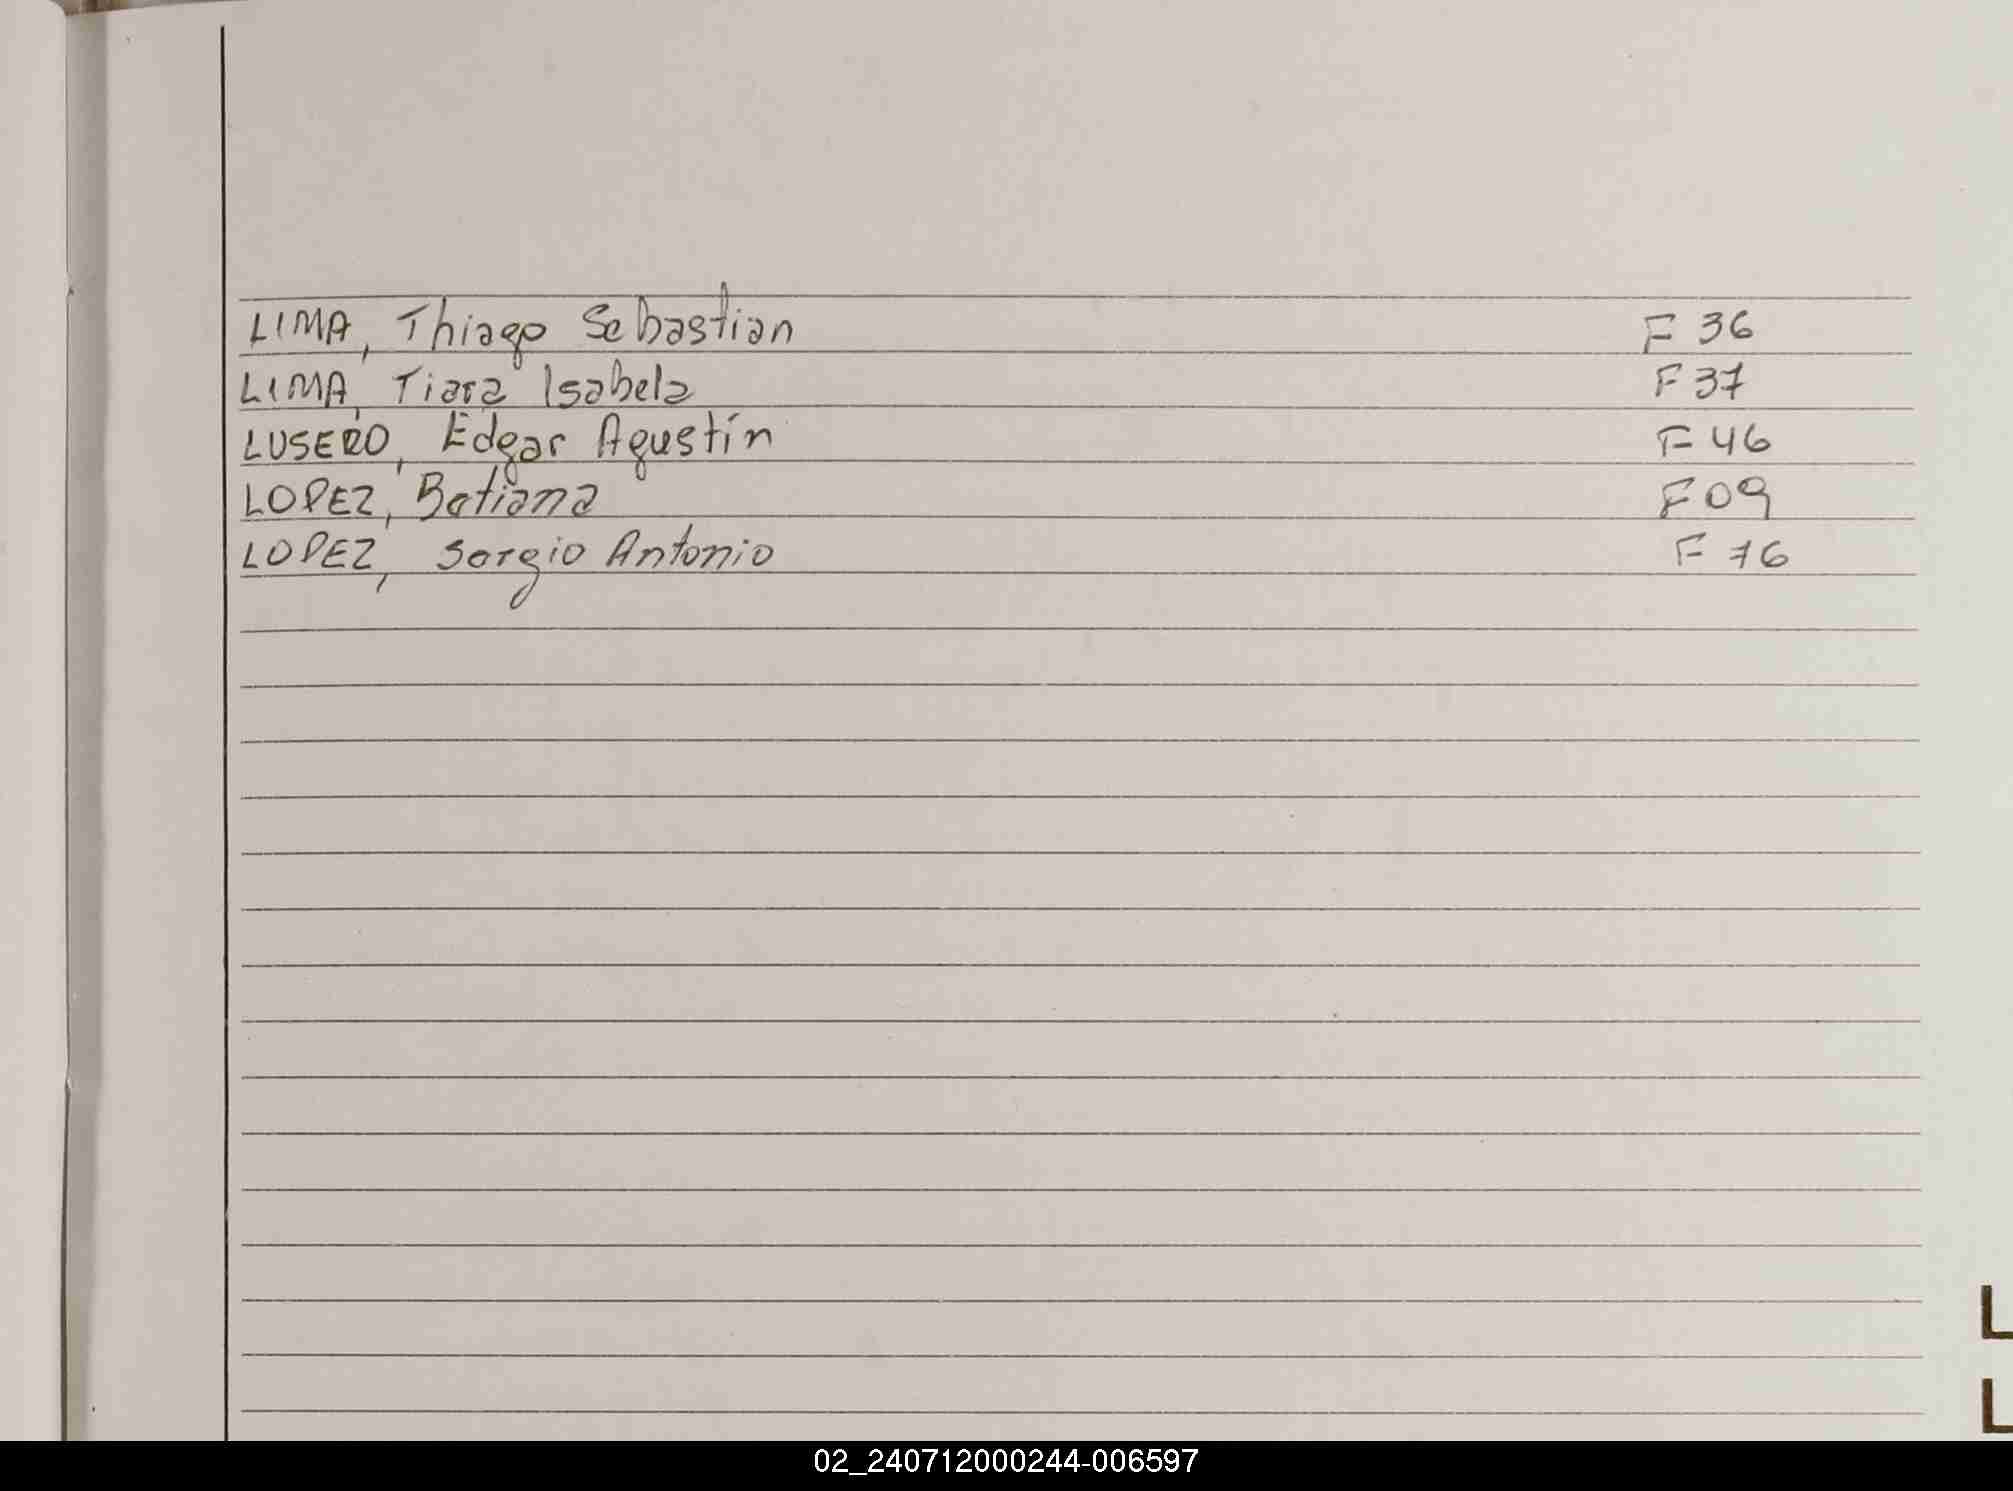 LIMA, Thiago Sebastian F 36
LIMA, Tiara Isabela F 37
LUSERO, Edgar Agustín F 46
LOPEZ, Batiana F 09
LOPEZ, Sergio Antonio F 76
L
L
02_240712000244-006597